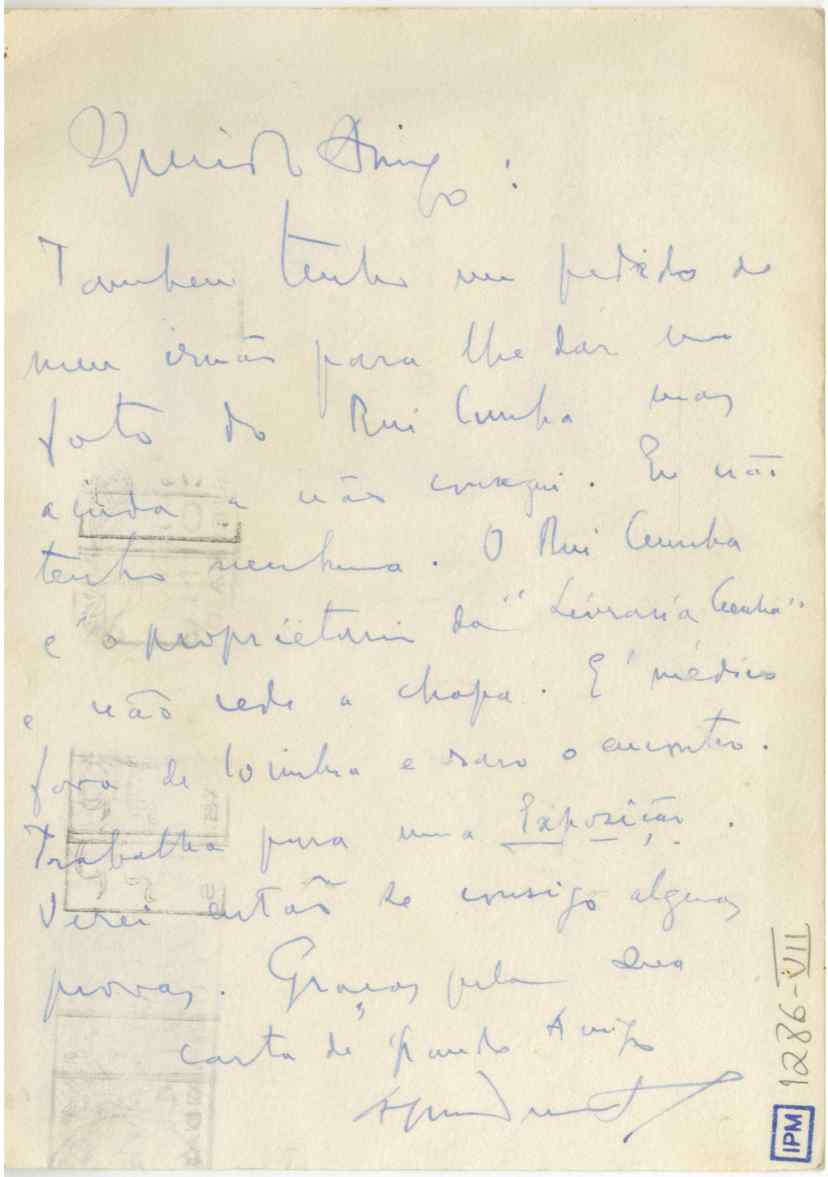 Querido Amigo:
Tambem tenho um pedido de
meu irmão para lhe dar uma
foto do Rui Cunha mas
ainda a não consegui. Eu não
tenho nenhuma. O Rui Cunha
é o proprietario da "Livraria Cunha"
e não cede a chapa. É médico
fora de Coimbra e raro o encontro.
Trabalha para uma Exposição.
Verei então se consigo algumas
provas. Graças pela sua
carta de grande Amigo
1286-VII
IPM